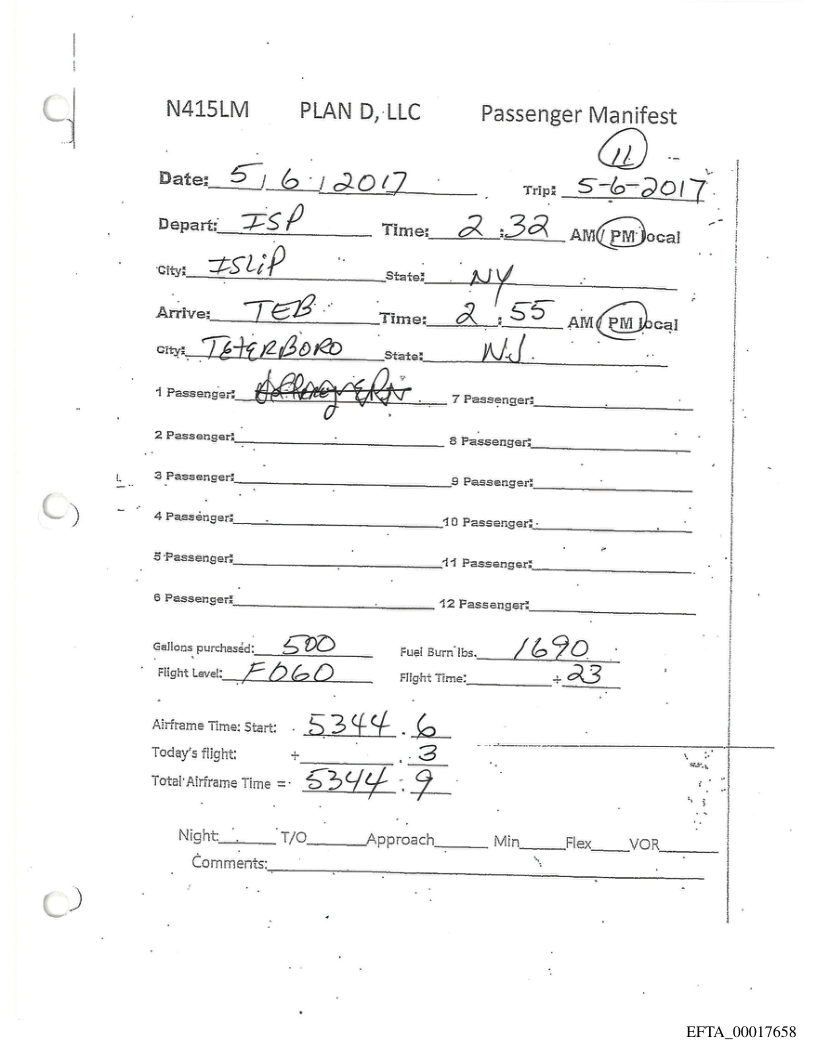 N415LM PLAN D, LLC Passenger Manifest
11
Date: 5/6/2017 Trip: 5-6-2017
Depart: ISP Time: 2:32 AM/PM local
City: ISLIP State: NY
Arrive: TEB Time: 2:55 AM/PM local
City: TETERBORO State: NJ.
1 Passenger: 7 Passenger:
2 Passenger: 8 Passenger:
3 Passenger: 9 Passenger:
4 Passenger: 10 Passenger:
5 Passenger: 11 Passenger:
6 Passenger: 12 Passenger:
Gallons purchased: 500 Fuel Burn lbs. 1690
Flight Level: F060 Flight Time: + 23
Airframe Time: Start: 5344.6
Today's flight: + .3
Total Airframe Time = 5344.9
Night T/O Approach Min Flex VOR
Comments:
EFTA_00017658